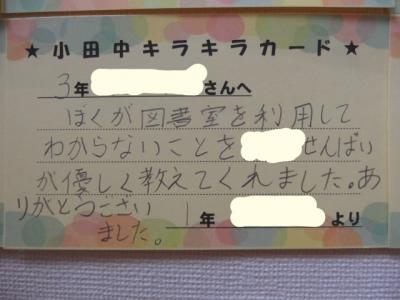 ★小田中キラキラカード★
3年 さんへ
ぼくが図書室を利用して
わからないことを せんぱい
が優しく教えてくれました。あ
りがとうござい
ました。
1年 より